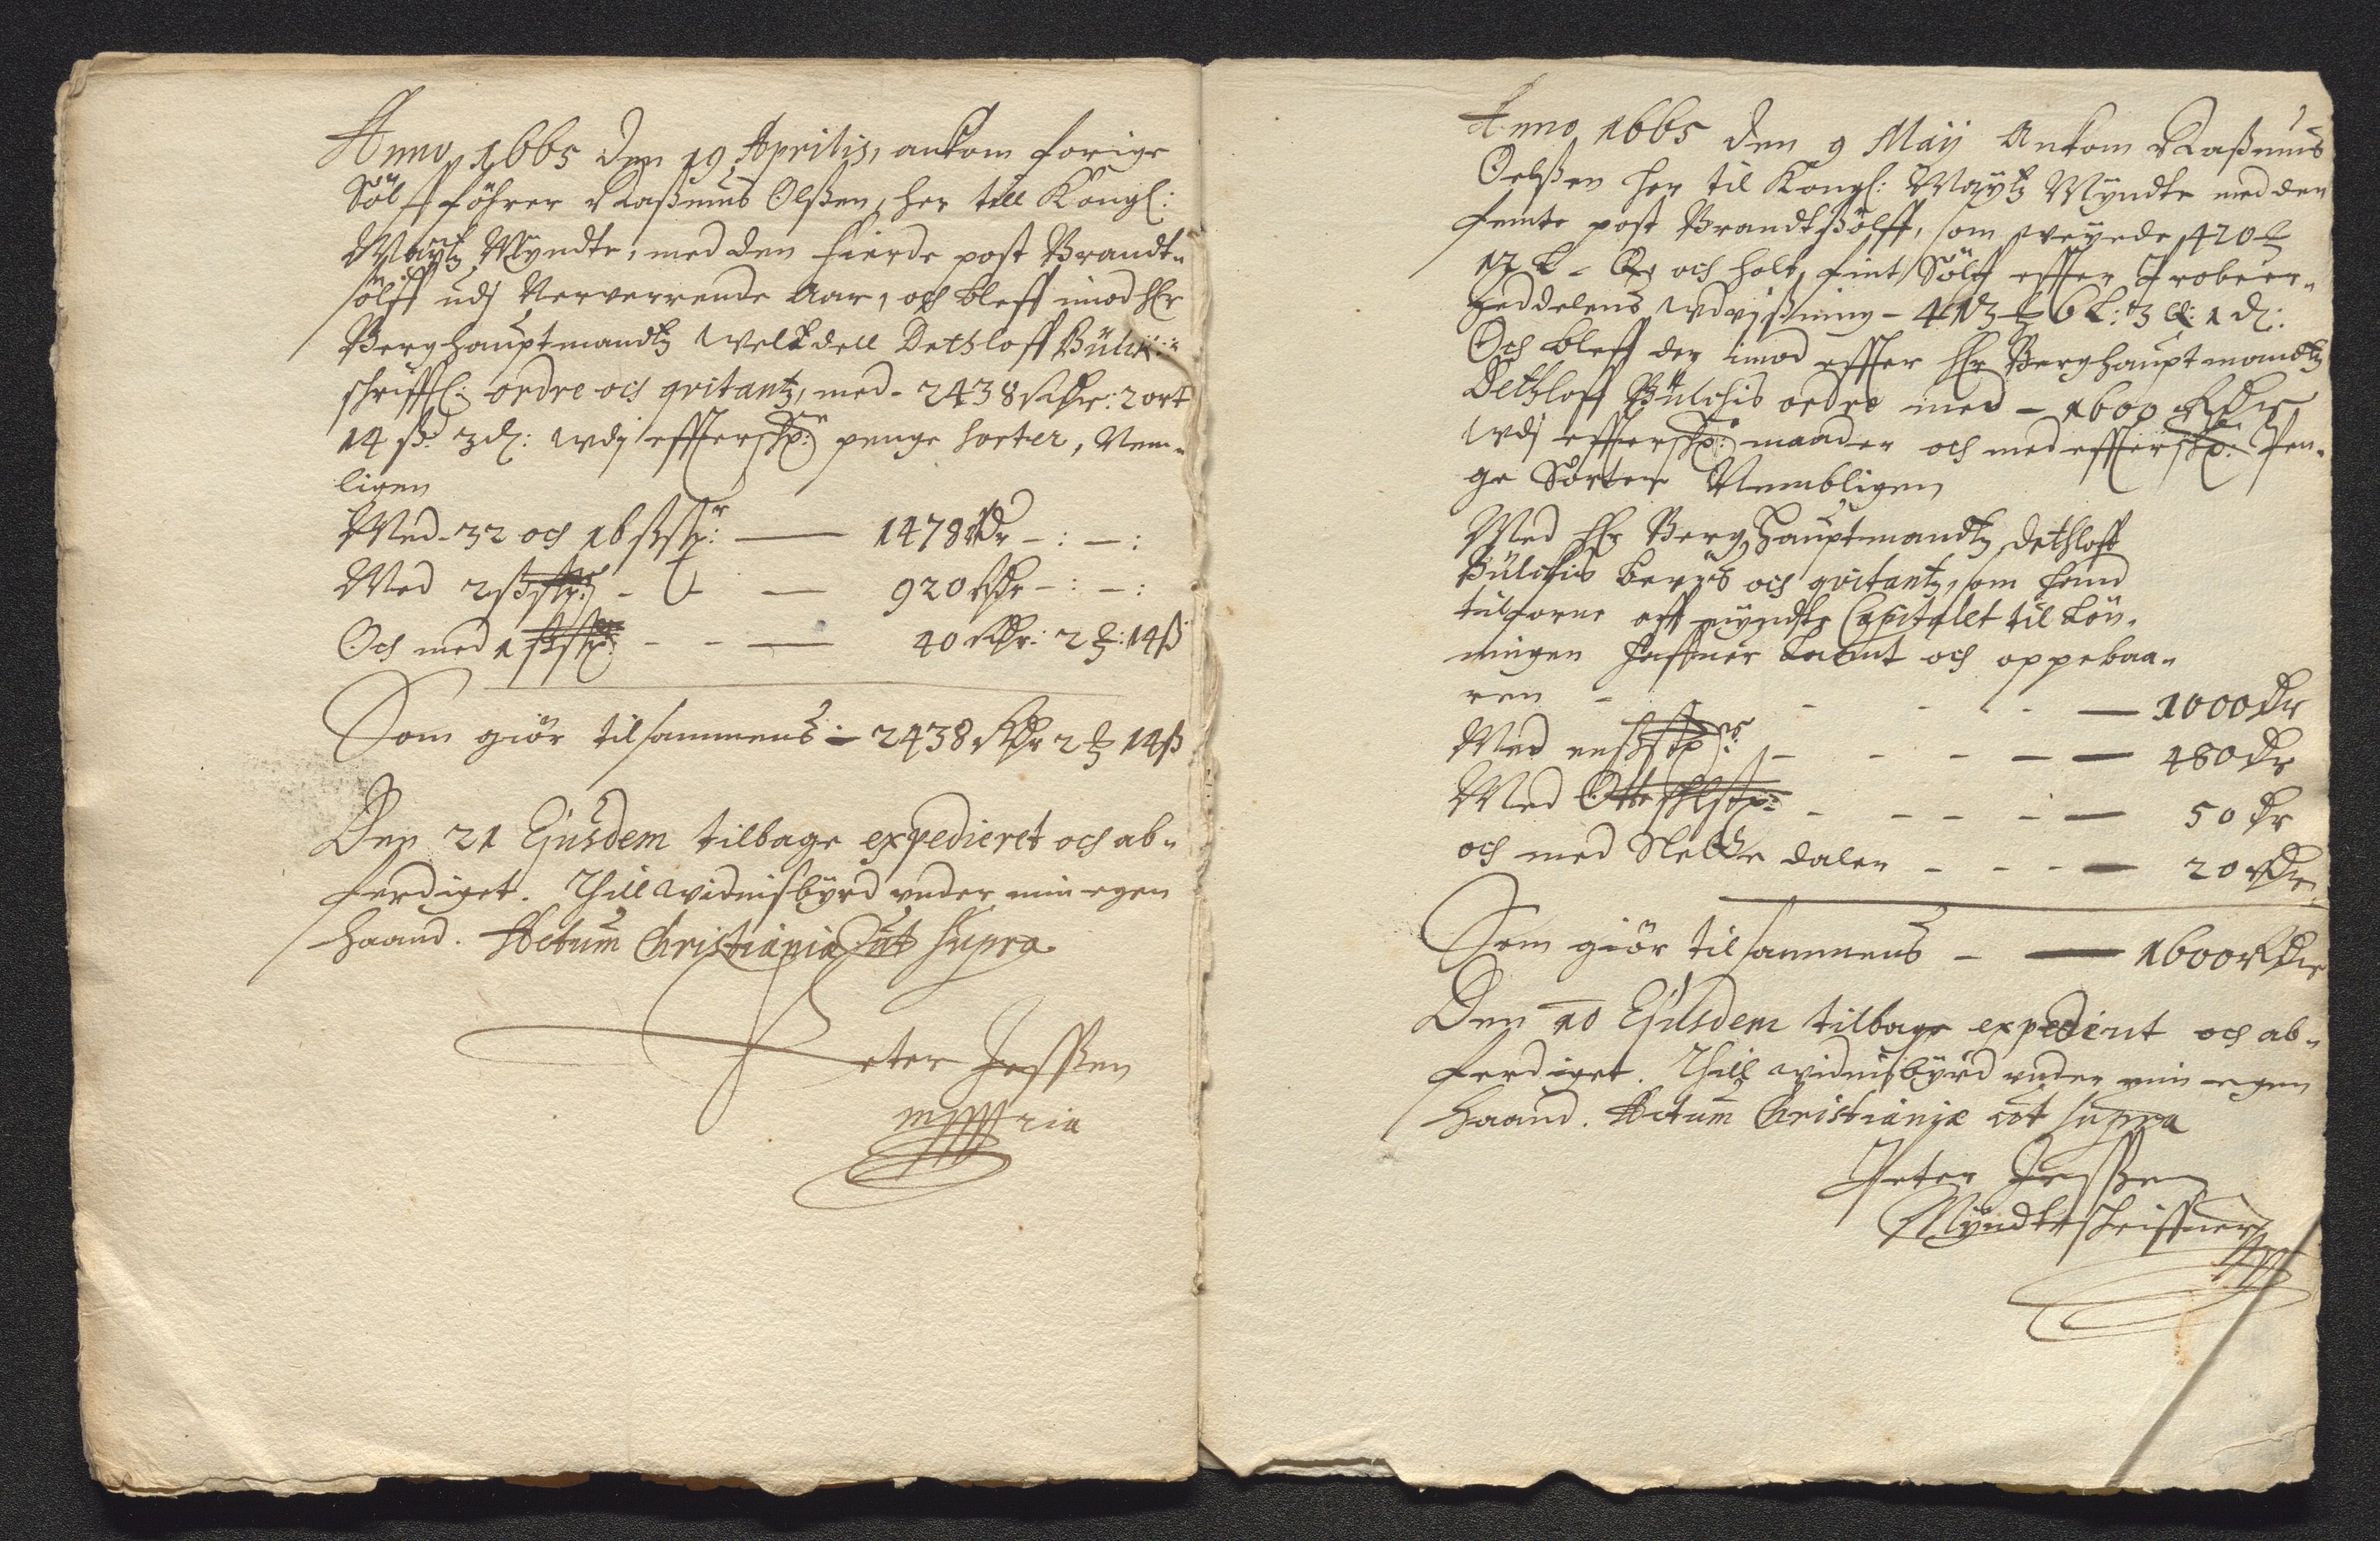 Anno 1665 den 19 Aprilis, ankom forige
Sölffører Raßmus Olßen, her till Kongl:
Maÿtz Mÿndte, med den fierde post Brandt-
sölff udj Nerverrende Aar, och bleff imod Hr
Berghauptmandtz Welbdell Dethloff Bülichis
schrifftl: ordre och qvitantz, med - 2438 Rdr: 2 ort
14 ß: 3 d: wdj effterschr: penge sorter, Nem-
ligen
Med - 32 och 16 ßstr: — 1478 Rdr - : - :
Med 2 ßstr: - — 920 Rdr - : - :
Och med 1 ßstr: - - — 40 Rdr: 2 : 14 ß
Som giör tilsammens - 2438 Rdr 2 14 ß
Den 21 Ejusdem tilbage expedieret och ab-
ferdiget. Thill widnisbÿrd under min egen
haand. Actum Christiania ut supra
Peter Jeßen
mppria
Anno 1665 den 9 Maij Ankom Raßmus
Oelßen her til Kongl: Maÿtz Mÿndte med den
femte post Brandtsölff, som weÿede 420
17 L - och holt fint Sölff effter Probeer-
Zeddelens Udvißning - 413 6 L: 3 Q: 1 d:
Och bleff der imod effter Hr Berghauptmandtz
Dethloff Bülchis ordre med - 1600 Rdr
wdj effterschr: maader och med effterschr: Pen-
ge Sorter Nembligen
Med Hr Berghauptmandtz Dethloff
Bülichis beviis och qvitantz, som hand
tilforne aff mÿndte Capitalet til Löy-
ningen haffuer laant och oppebaa-
ren - - - - - — 1000 Dr
Med - - - - — Dr
Med Otte - - - - — 50 Dr
och med Slette daler - - - — 20 Rdr
Som giör tilsammens - — 1600 Rdr
Den 10 Ejusdem tilbage expedirit och ab-
ferdiget. Thill widnisbÿrd under min egen
haand. Actum Christianiæ ut supra
Peter Jeßen
Mÿndteschriffuer